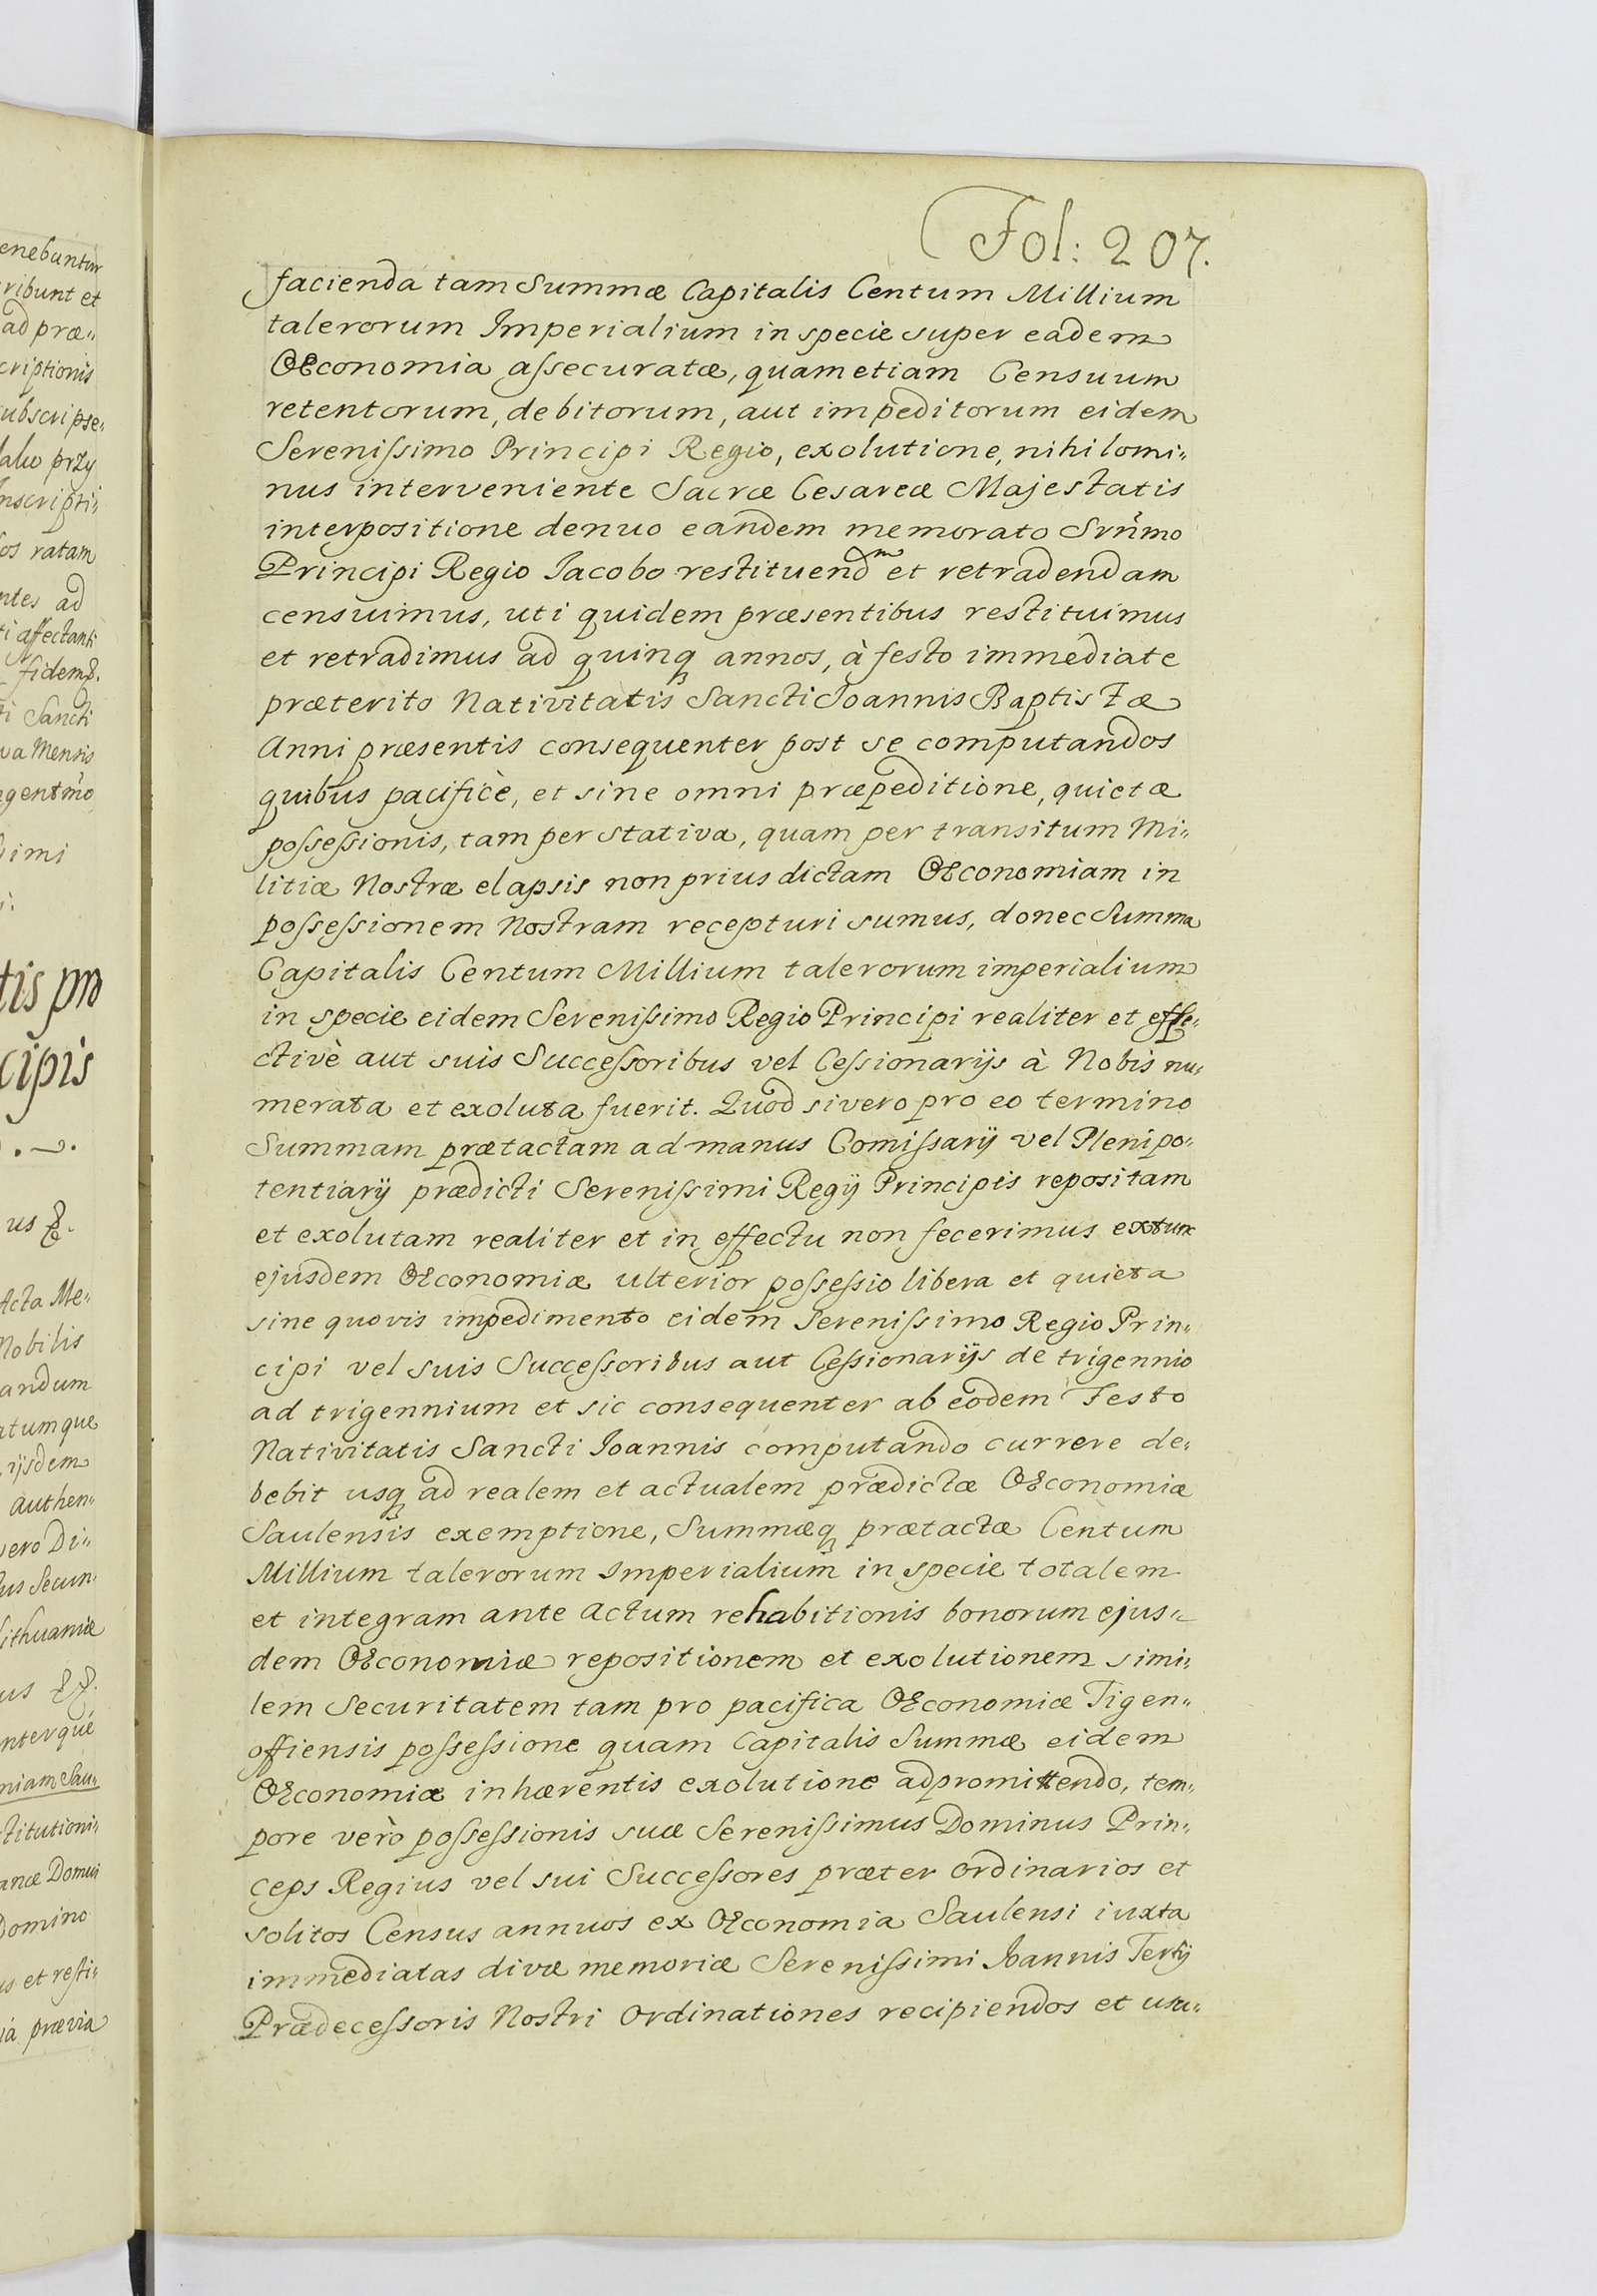 Fol: 207.
facienda tam Summæ Capitalis Centum Millium
talerorum Imperialium in specie super eadem
Œconomia aſsecuratæ, quam etiam Censuum
retentorum, debitorum, aut impeditorum eidem
Sereniſsimo Principi Regio, exolutione, nihilomi„
nus interveniente Sacræ Cesareæ Majestatis
interpositione denuo eandem memorato Srñmo
Principi Regio Jacobo restituend^m et retradendam
censuimus, uti quidem præsentibus restituimus
et retradimus ad quinq annos, à festo immediate
præterito Nativitatis Sancti Joannis Baptistæ
Anni præsentis consequenter post se computandos
quibus pacificè, et sine omni præpeditione, quietæ
poſseſsionis, tam per stativa, quam per transitum Mi„
litiæ Nostræ elapsis non prius dictam Œconomiam in
poſseſsionem Nostram recepturi sumus, donec Summa
Capitalis Centum Millium talerorum imperialium
in specie eidem Sereniſsimo Regio Principi realiter et effe„
ctivè aut suis Succeſsoribus vel Ceſsionarijs à Nobis nu„
merata et exoluta fuerit. Quod si vero pro eo termino
Summam prætactam ad manus Comiſsarij vel Plenipo„
tentiarij prædicti Sereniſsimi Regij Principis repositam
et exolutam realiter et in effectu non fecerimus extunc
ejusdem Œconomiæ ulterior poſseſsio libera et quieta
sine quovis impedimento eidem Sereniſsimo Regio Prin„
cipi vel suis Succeſsoribus aut Ceſsionarijs de trigennio
ad trigennium et sic consequenter ab eodem Festo
Nativitatis Sancti Joannis computando currere de„
bebit usq ad realem et actualem prædictæ Œconomiæ
Saulensis exemptione, Summæq prætactæ Centum
Millium talerorum Imperialium in specie totalem
et integram ante actum rehabitionis bonorum ejus„
dem Œconomiæ repositionem et exolutionem simi„
lem Securitatem tam pro pacifica Œconomiæ Tigen„
offiensis poſseſsione quam Capitalis Summæ eidem
Œconomiæ inhærentis exolutione adpromittendo, tem„
pore verò poſseſsionis suæ Sereniſsimus Dominus Prin„
ceps Regius vel sui Succeſsores præter ordinarios et
solitos Census annuos ex Œconomia Saulensi iuxta
immediatas divæ memoriæ Sereniſsimi Joannis Tertij
Prædeceſsoris Nostri Ordinationes recipiendos et usu„